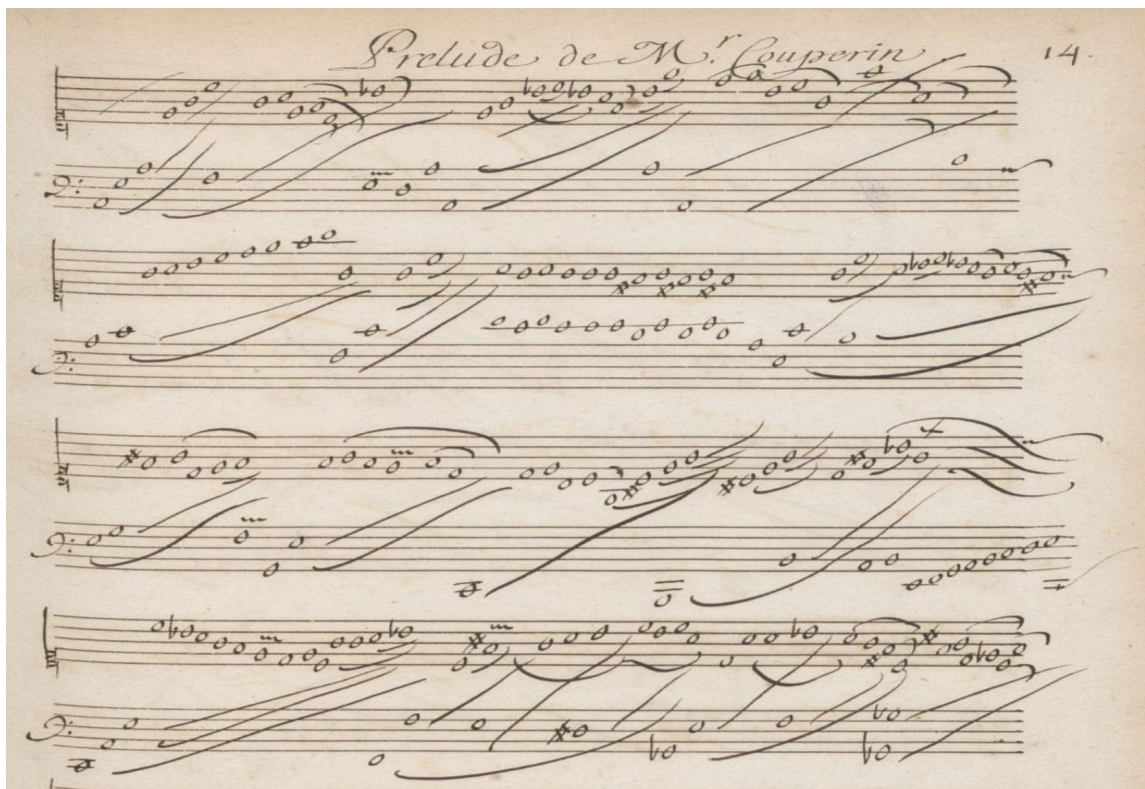 Prelude de Mr. Couperin 14.